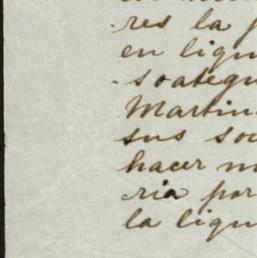 res la
en liqu
soategu
Martin
sus soc
hacer
ria por
la liqu